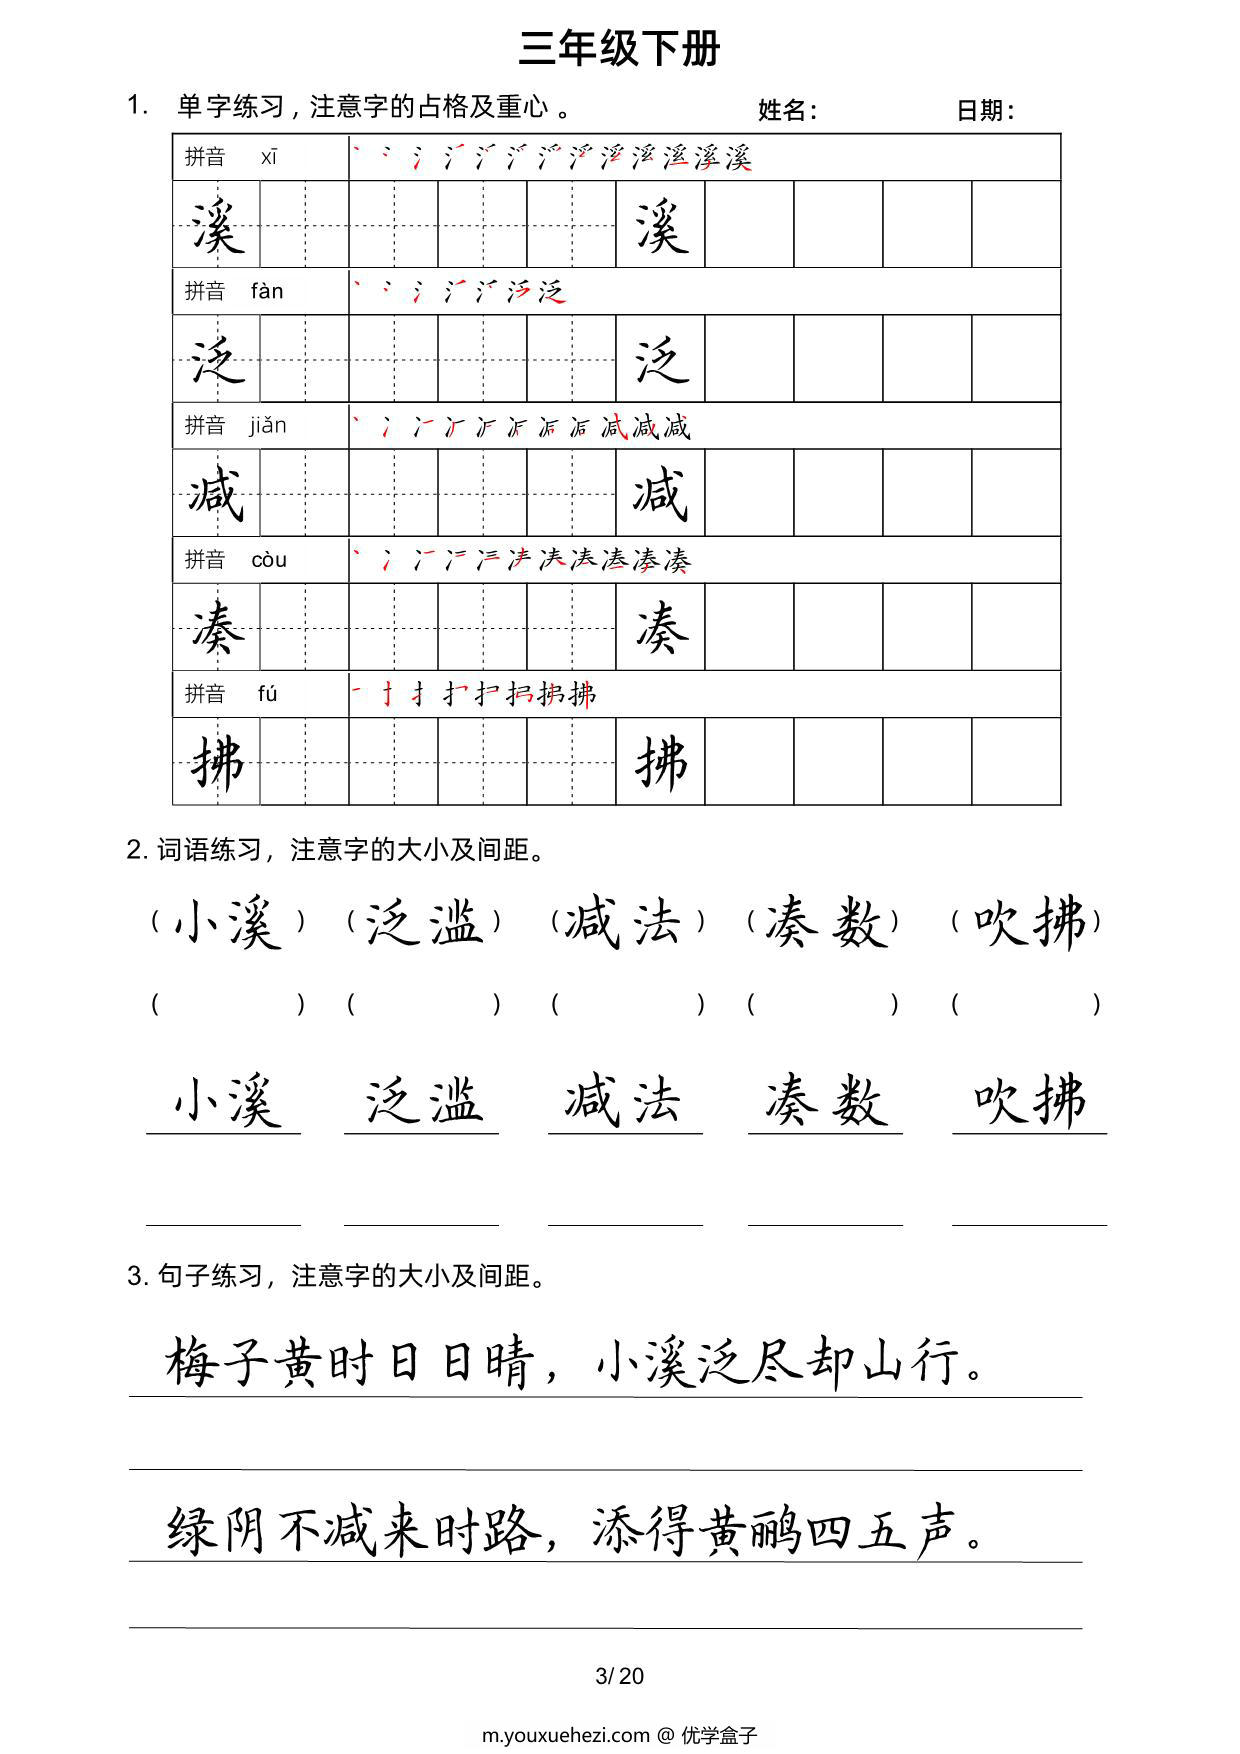 三年级下册
1. 单字练习，注意字的占格及重心。 姓名： 日期：
拼音 xī
溪 溪
拼音 fàn
泛 泛
拼音 jiǎn
减 减
拼音 còu
凑 凑
拼音 fú
拂 拂
2. 词语练习，注意字的大小及间距。
（小溪）（泛滥）（减法）（凑数）（吹拂）
（ ）（ ）（ ）（ ）（ ）
小溪 泛滥 减法 凑数 吹拂
3. 句子练习，注意字的大小及间距。
梅子黄时日日晴，小溪泛尽却山行。
绿阴不减来时路，添得黄鹂四五声。
3/20
m.youxuehezi.com @ 优学盒子